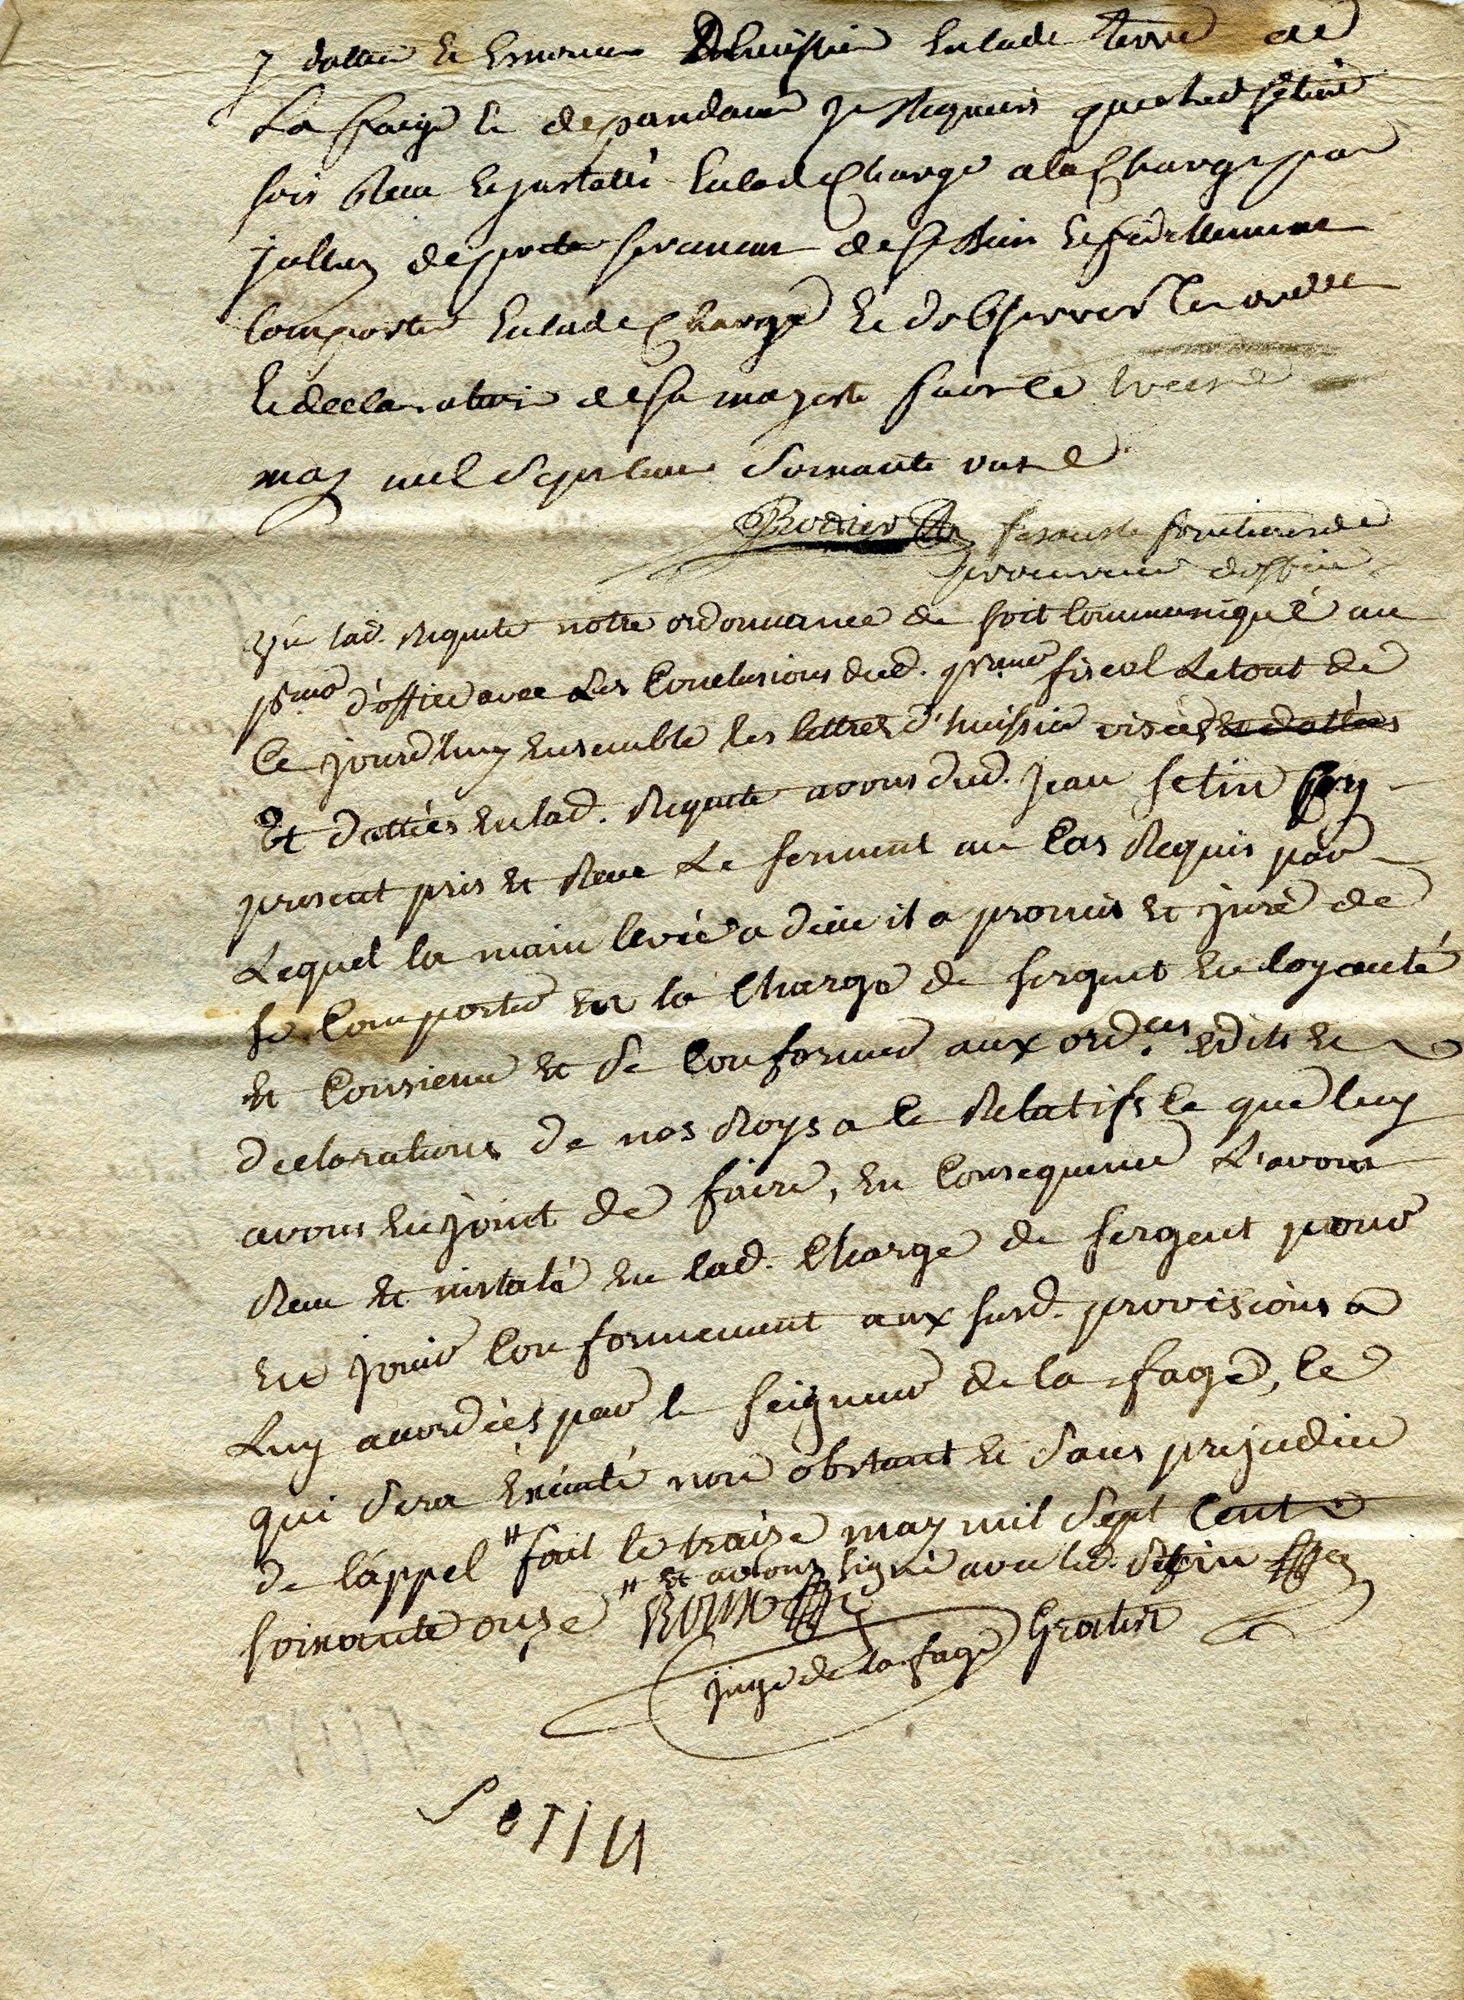 y dattée et d'huissier en lade terre de
La fage et dependance je Requiers que led setin
soit Receu et installé en lade Charge a la Charge par
de porter serment de se bien et fidellement
comporter en lade Charge et d'observer les
et declarations de sa majesté faits le
may mil sept cent soixante onze
Rodier faisant fonctions de
procureur d'office
Veu lad. Requete notre ordonnance de soit communiqué au
d'office avec les conclusions dud. fiscal le tout de
ce jourd'huy ensemble les lettres d'huissier visées et dattées
Et dattées en lad. Requete avons dud. jean setin
present pris et Receu le serment au cas Requis par
Lequel la main levée a dieu il a promis et juré de
se comporter en la charge de sergent en loyauté
et consience et se conformer aux ordces. edits et
declarations de nos Roys a ce Relatifs ce que luy
avons enjoint de faire, en consequence L'avons
Receu et instalé en lad. charge de sergent pour
en jouir conformement aux susd. provisions a
Luy accordées par le seigneur de la fage, ce
qui sera exécuté non obstant et sans prejudice
de l'appel " fait le traise may mil sept cent
soixante onze " et avons signé avec led. Setin
Roux
juge de la fage Gratin
Setin